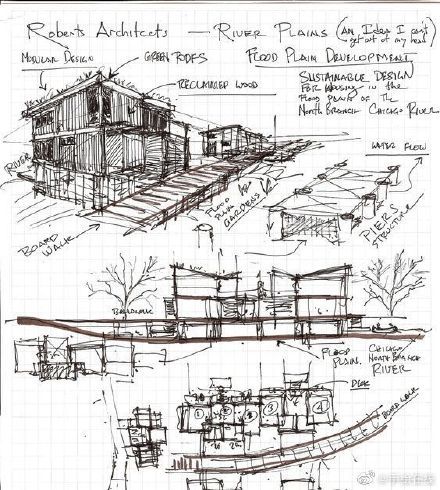 Roberts Architects — River Plains (An Idea I can't
get out of my head)
Modular Design
Green Roofs
Flood Plain Development
Reclaimed Wood
Sustainable Design
for housing in the
flood plains of the
North Branch Chicago River
River
Water Flow
Flood
Plain
Gardens
Board
Walk
Piers
Structure
Boardwalk
Flood
Plain
Chicago
North Branch
River
Deck
1
2
3
4
Board Walk